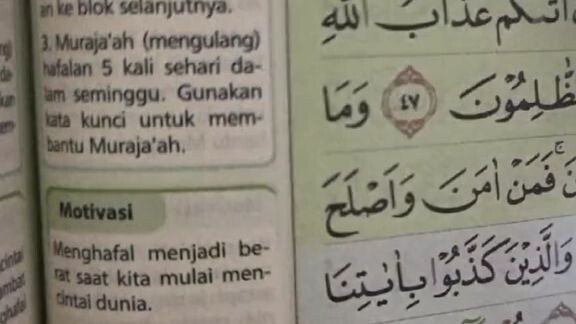 an ke blok selanjutnya.
3. Muraja'ah (mengulang)
hafalan 5 kali sehari da-
lam seminggu. Gunakan
kata kunci untuk mem-
bantu Muraja'ah.
Motivasi
Menghafal menjadi be-
rat saat kita mulai men-
cintai dunia.
عَذَابُ اللّٰهِ
الظّٰلِمُوْنَ ٤٧ وَمَا
فَمَنْ اٰمَنَ وَاَصْلَحَ
وَالَّذِيْنَ كَذَّبُوْا بِاٰيٰتِنَا